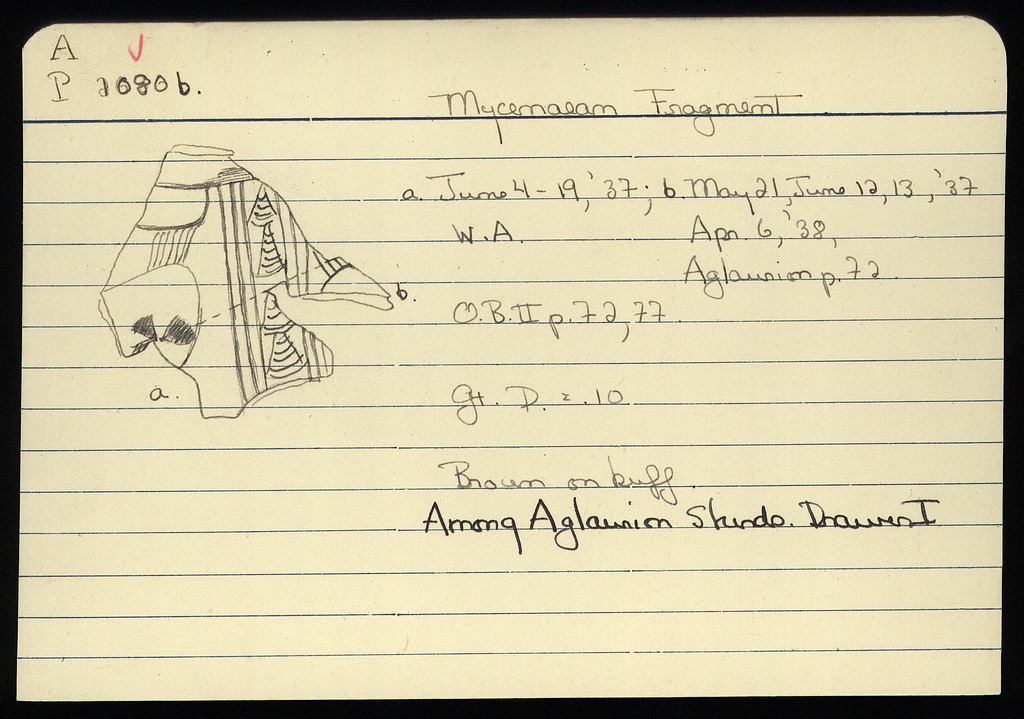 A
P 1080 b.
Mycenaean Fragment
a. June 4-19, '37; b. May 21, June 12, 13, '37
W.A. Apr. 6, '38,
Aglaurion p. 72.
O.B. II p. 72, 77
b.
a.
Gr. D. = .10
Brown on buff.
Among Aglaurion Sherds. Drawer I